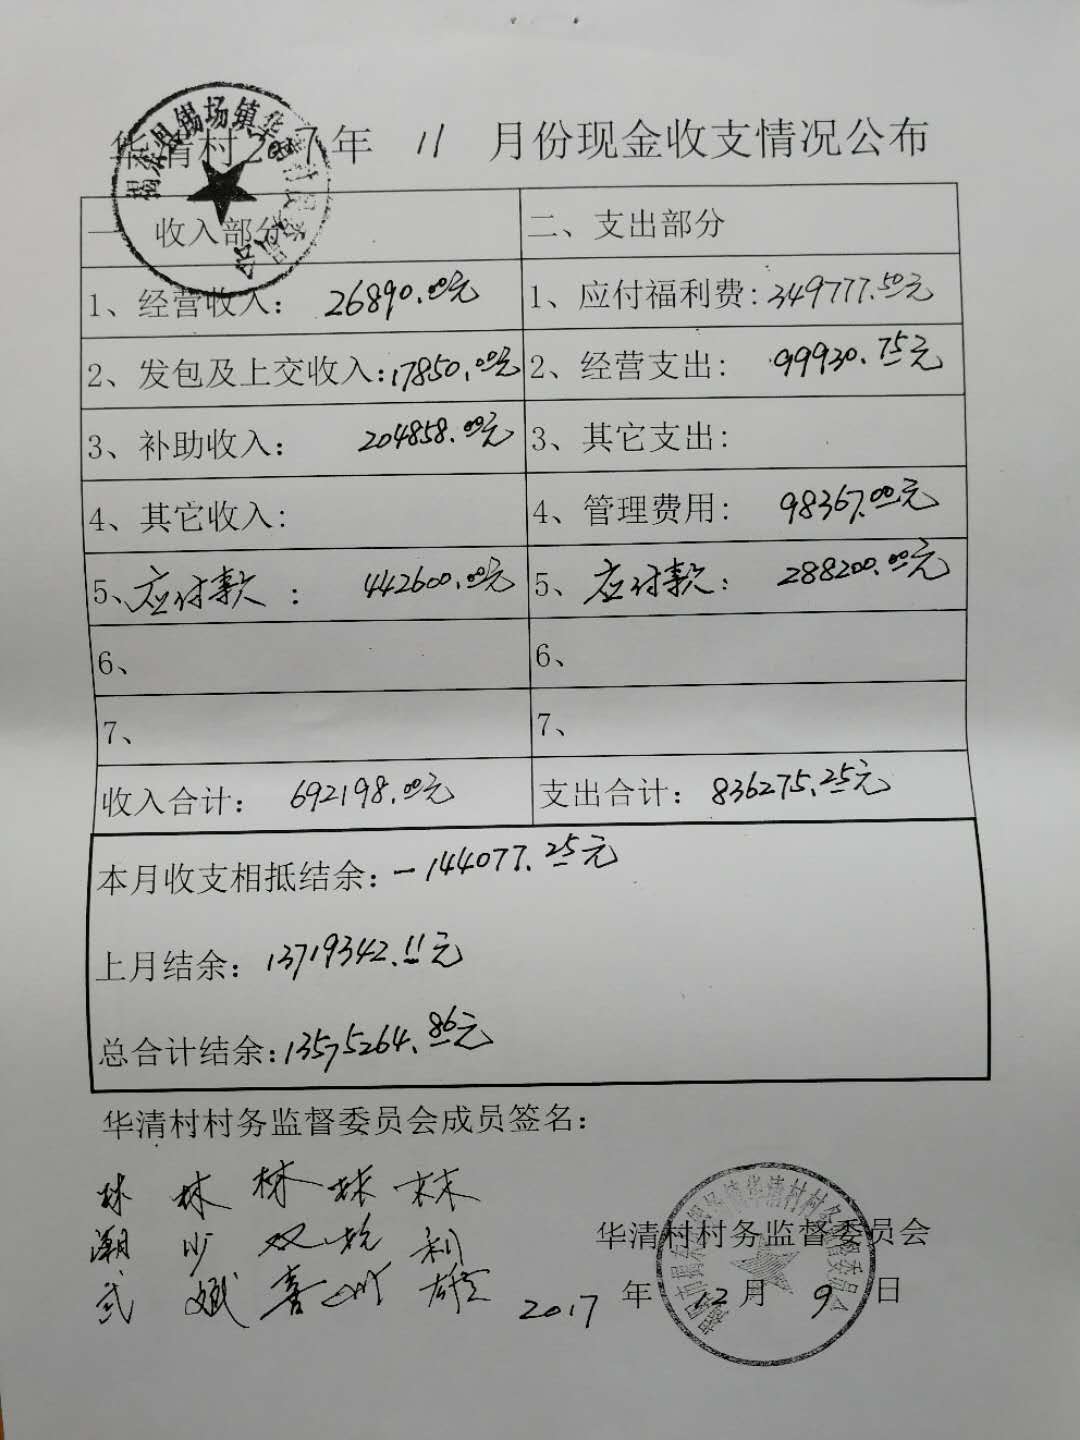 华清村2017年 11 月份现金收支情况公布
一、收入部分
二、支出部分
1、经营收入: 26890.00元
1、应付福利费: 349777.50元
2、发包及上交收入: 17850.00元
2、经营支出: 99930.75元
3、补助收入: 204858.00元
3、其它支出:
4、其它收入:
4、管理费用: 98367.00元
5、应付款: 442600.00元
5、应付款: 288200.00元
6、
6、
7、
7、
收入合计: 692198.00元
支出合计: 836275.25元
本月收支相抵结余: -144077.25元
上月结余: 13719342.11元
总合计结余: 13575264.86元
华清村村务监督委员会成员签名:
林 林 林 林 林
潮 少 双 利
武 斌 喜 雄
华清村村务监督委员会
2017 年 12 月 9 日